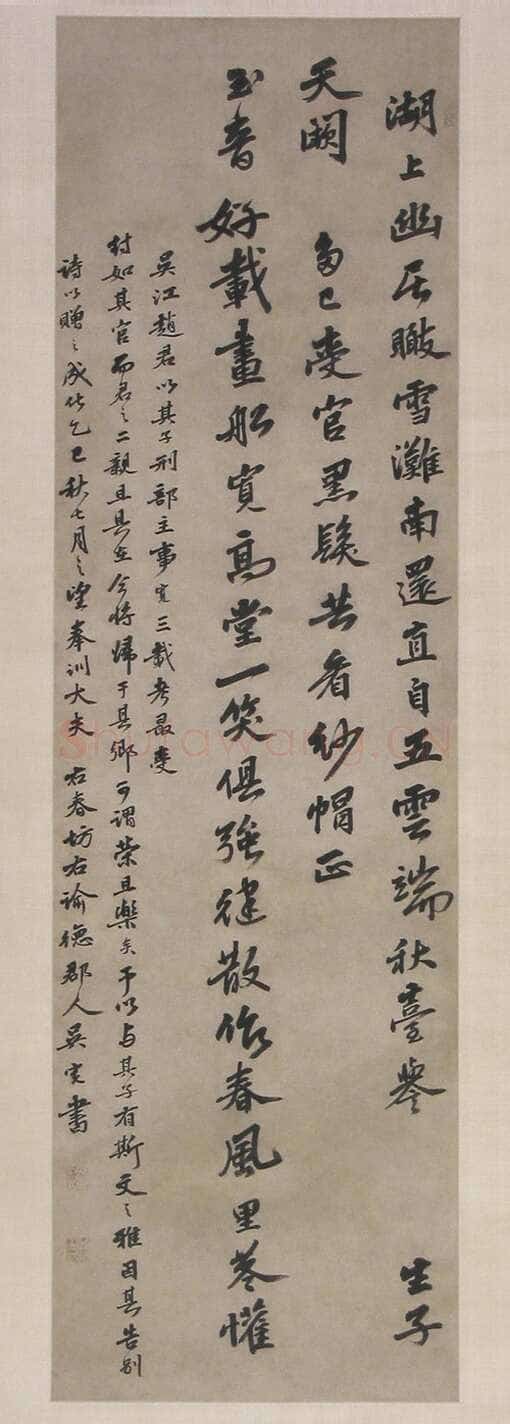 湖上幽居瞰雪灘南還直自五雲端秋臺譽 生子
天闕 多已受官黑髮共看紗帽正
玉音好載畫船寬高堂一笑俱強健散作春風里巷懽
吳江趙君以其子刑部主事寬三載考最受
封如其官而君之二親且具在今將歸于其鄉可謂榮且樂矣予以与其子有斯文之雅因其告别
詩以贈之成化乙巳秋七月之望奉訓大夫右春坊右諭德郡人吳寬書